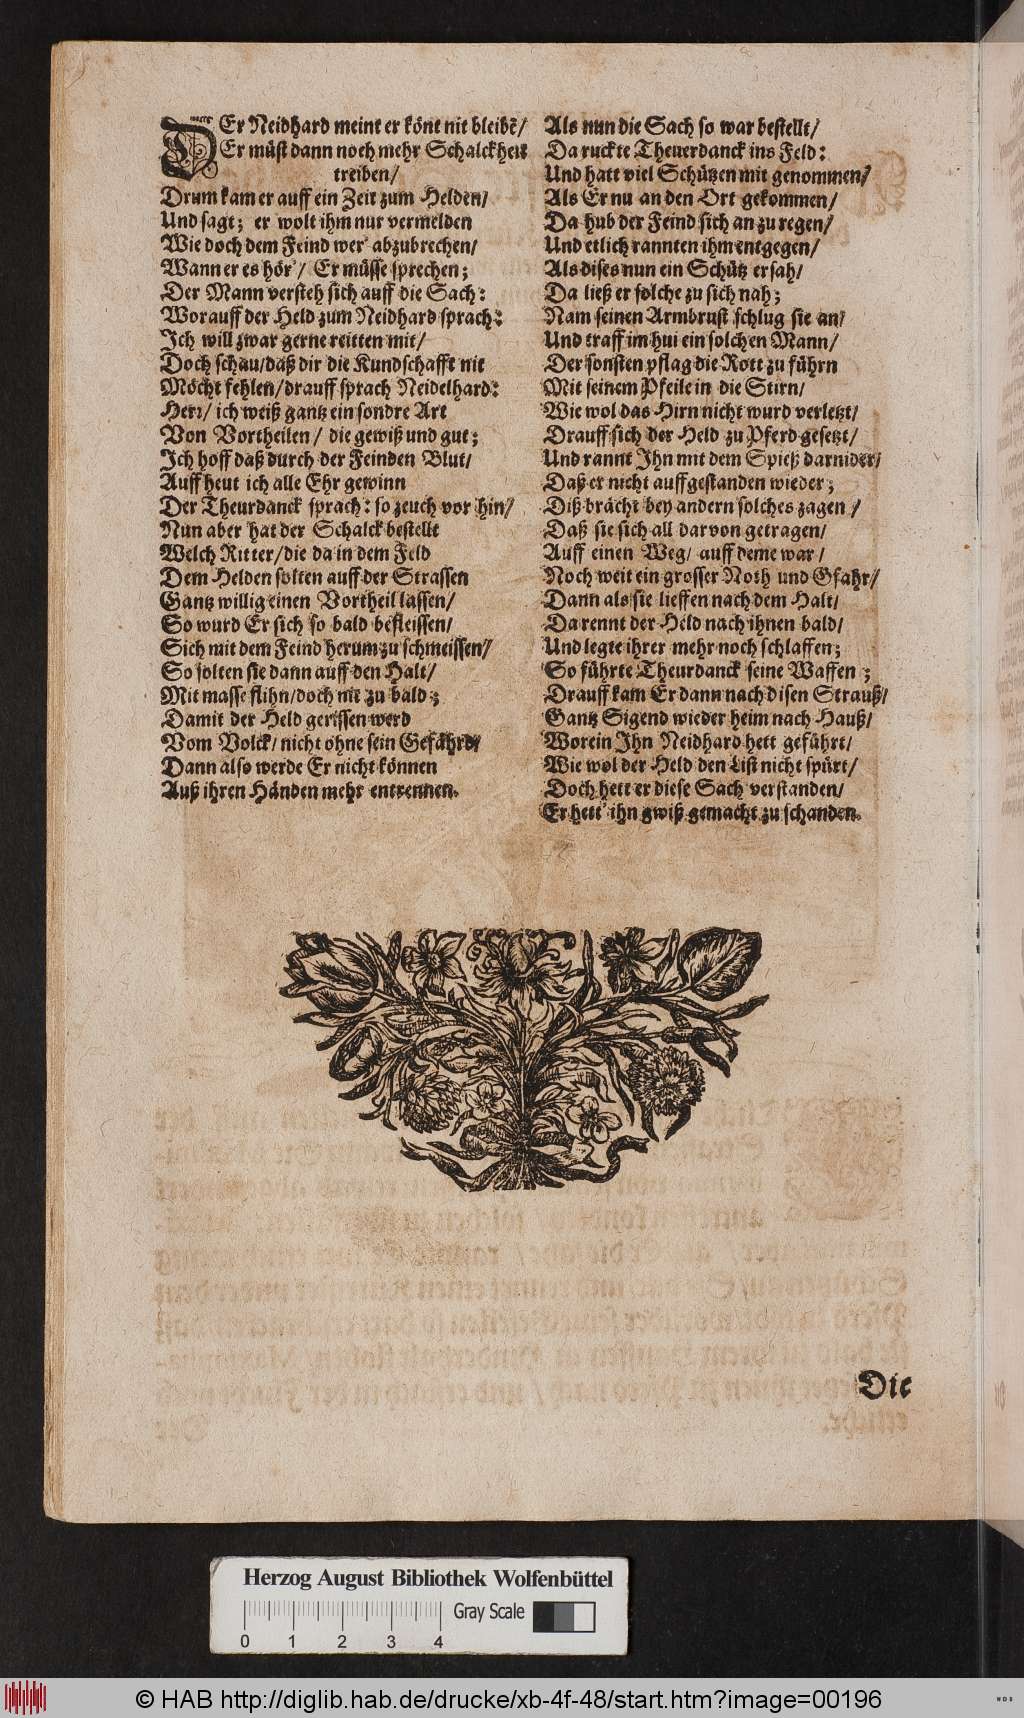 DEr Neidhard meint er könt nit bleibē/
Er müst dann noch mehr Schalckheit
treiben/
Drum kam er auff ein Zeit zum Helden/
Und sagt; er wolt ihm nur vermelden
Wie doch dem Feind wer' abzubrechen/
Wann er es hör'/ Er müsse sprechen;
Der Mann versteh sich auff die Sach:
Worauff der Held zum Neidhard sprach:
Ich will zwar gerne reitten mit/
Doch schau/daß dir die Kundschafft nit
Möcht fehlen/drauff sprach Neidelhard:
Herr/ ich weiß gantz ein sondre Art
Von Vortheilen/ die gewiß und gut;
Ich hoff daß durch der Feinden Blut/
Auff heut ich alle Ehr gewinn
Der Theurdanck sprach: so zeuch vor hin/
Nun aber hat der Schalck bestellt
Welch Ritter/die da in dem Feld
Dem Helden solten auff der Strassen
Gantz willig einen Vortheil lassen/
So wurd Er sich so bald befleissen/
Sich mit dem Feind herum zu schmeissen/
So solten sie dann auff den Halt/
Mit masse flihn/doch nit zu bald;
Damit der Held gerissen werd
Vom Volck/ nicht ohne sein Gefährd/
Dann also werde Er nicht können
Auß ihren Händen mehr entrennen.
Als nun die Sach so war bestellt/
Da ruckte Theuerdanck ins Feld:
Und hatt viel Schützen mit genommen/
Als Er nu an den Ort gekommen/
Da hub der Feind sich an zu regen/
Und etlich rannten ihm entgegen/
Als dises nun ein Schütz ersah/
Da ließ er solche zu sich nah;
Nam seinen Armbrust schlug sie an/
Und traff im hui ein solchen Mann/
Der sonsten pflag die Rott zu führn
Mit seinem Pfeile in die Stirn/
Wie wol das Hirn nicht wurd verletzt/
Drauff sich der Held zu Pferd gesetzt/
Und rannt Ihn mit dem Spieß darnider/
Daß er nicht auffgestanden wieder;
Diß brächt bey andern solches zagen/
Daß sie sich all darvon getragen/
Auff einen Weg/ auff deme war/
Noch weit ein grosser Noth und Gfahr/
Dann als sie lieffen nach dem Halt/
Da rennt der Held nach ihnen bald/
Und legte ihrer mehr noch schlaffen;
So führte Theurdanck seine Waffen;
Drauff kam Er dann nach disen Strauß/
Gantz Sigend wieder heim nach Hauß/
Worein Ihn Neidhard hett geführt/
Wie wol der Held den List nicht spürt/
Doch hett er diese Sach verstanden/
Er hett' ihn gwiß gemacht zu schanden.
Die
Herzog August Bibliothek Wolfenbüttel
Gray Scale
0 1 2 3 4
© HAB http://diglib.hab.de/drucke/xb-4f-48/start.htm?image=00196